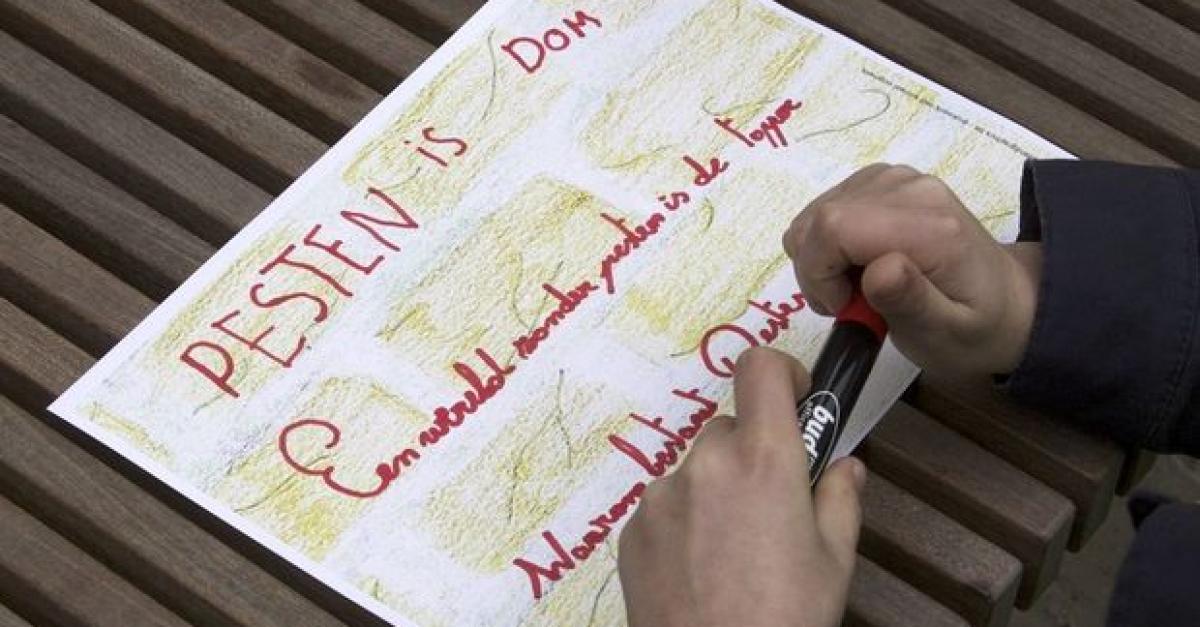 PESTEN is DOM
Een wereld zonder pesten is de topper
Waarom bestaat Pesten
bud